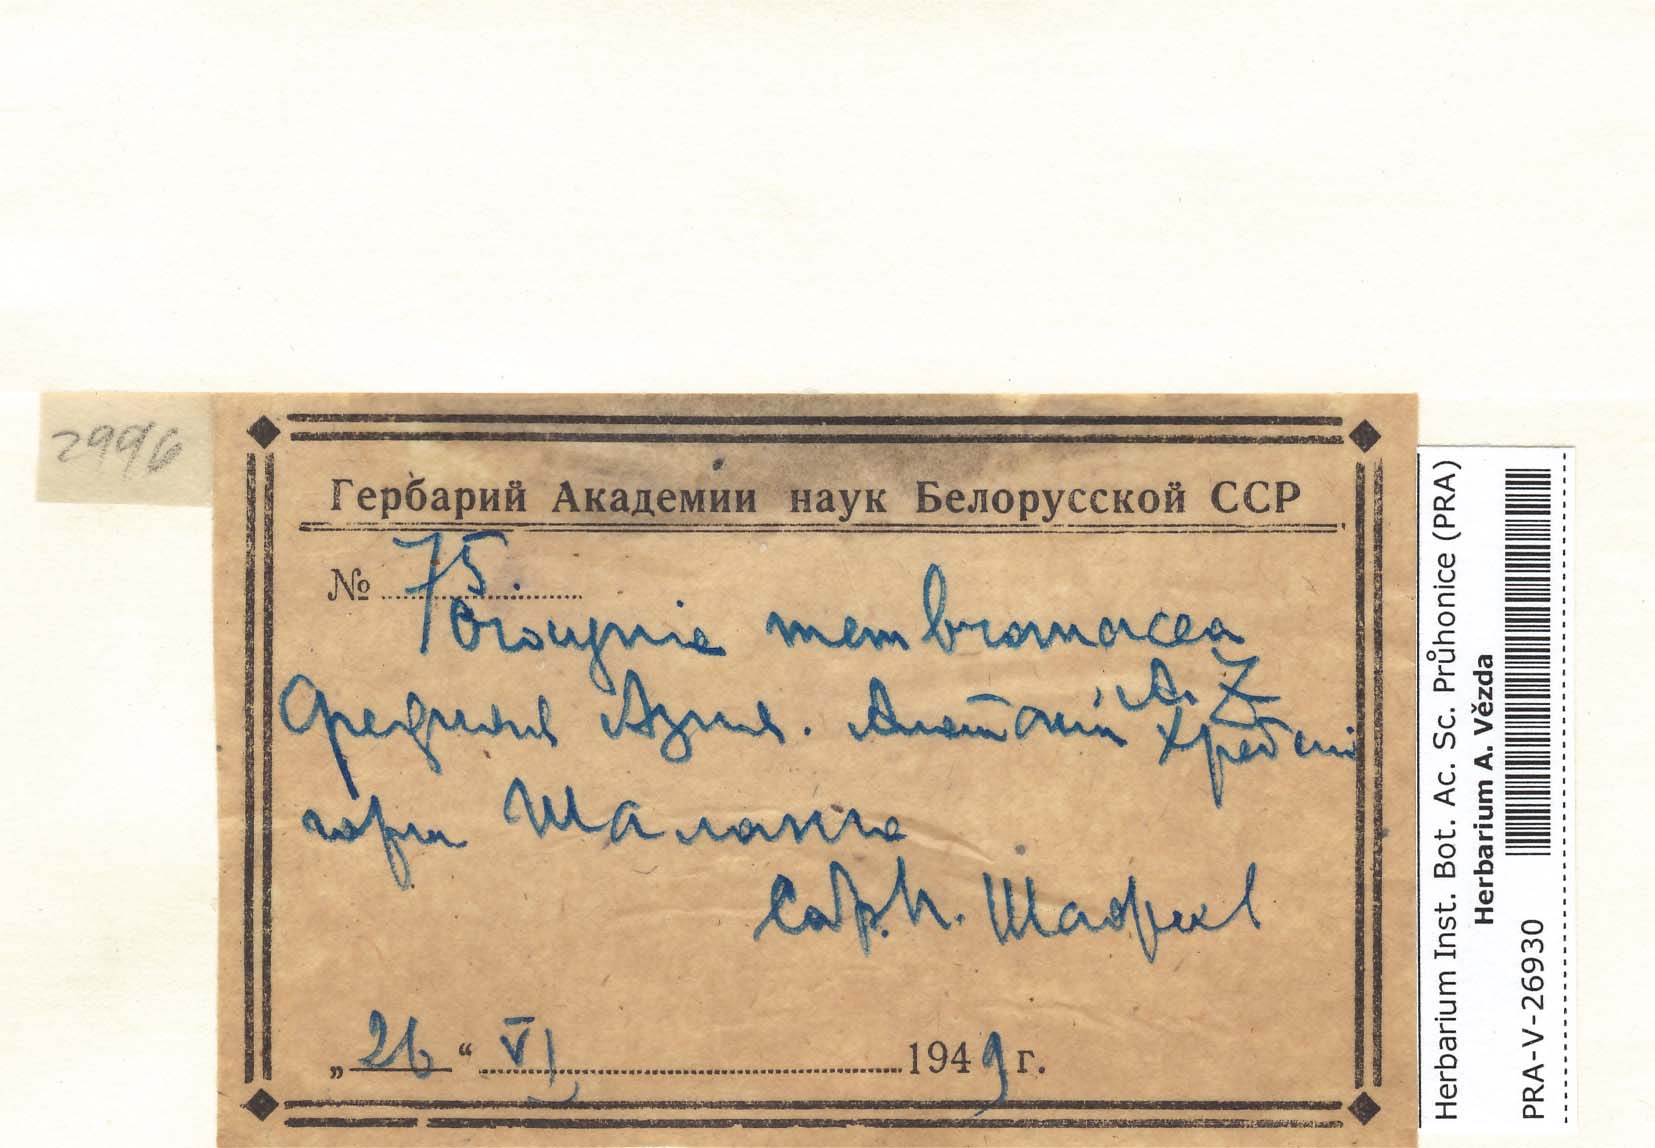 2996
Гербарий Академии наук Белорусской ССР
№ 75.
membranacea
A. Z
Средняя Азия. хребет
горы
„ 26 “ VI 1949 г.
Herbarium Inst. Bot. Ac. Sc. Průhonice (PRA)
Herbarium A. Vězda
PRA-V-26930